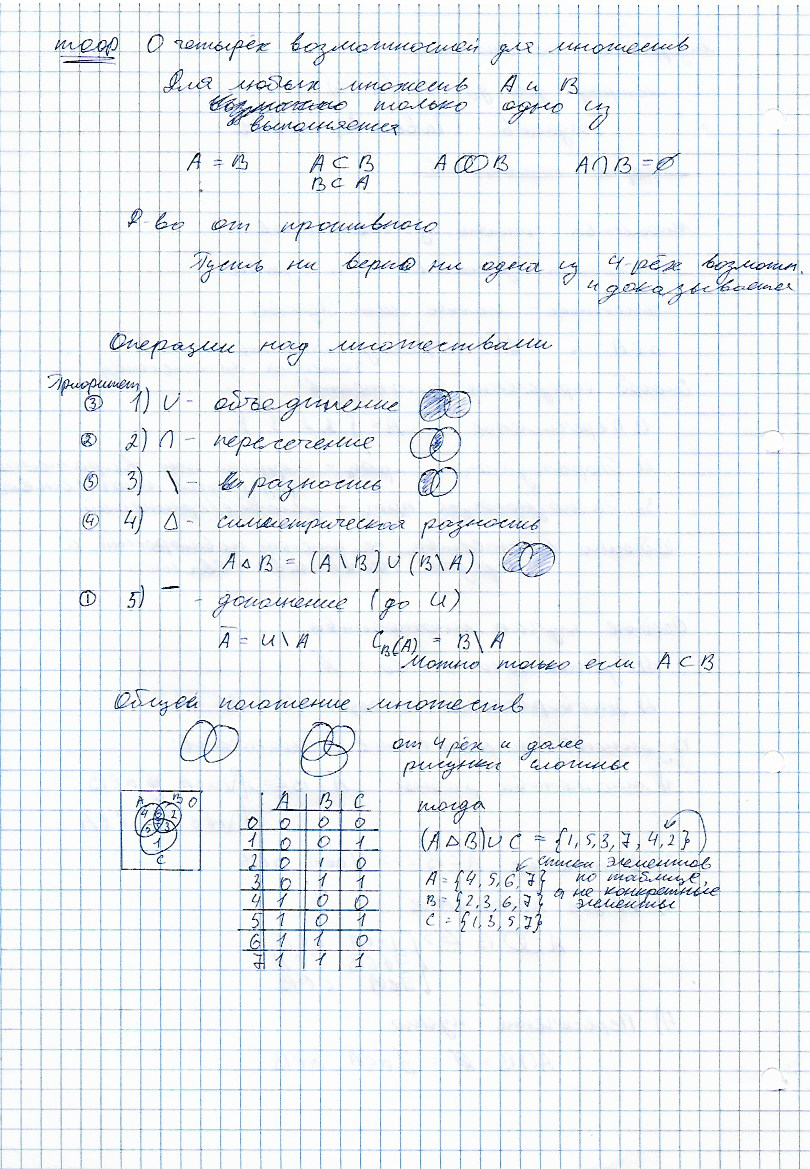 теор О четырёх возможностях для множеств
Для любых множеств A и B
только одно из
выполняется
A = B A ⊂ B A B A∩B = ∅
B ⊂ A
Д-во от противного
Пусть ни верно ни одна из 4-рёх возможн.
и доказывается
Операции над множествами
Приоритет
③ 1) ∪ - объединение
② 2) ∩ - пересечение
⑤ 3) \ - разность
④ 4) △ - симметрическая разность
A △ B = (A \ B) ∪ (B \ A)
① 5) ‾ - дополнение (до U)
A̅ = U \ A C_B(A) = B \ A
Можно только если A ⊂ B
Общее положение множеств
от 4рёх и далее
рисунки сложны
A B 0
4 6 2
5 7 3
1
C
A B C
0 0 0 0
1 0 0 1
2 0 1 0
3 0 1 1
4 1 0 0
5 1 0 1
6 1 1 0
7 1 1 1
тогда
(A △ B) ∪ C = {1, 5, 3, 7, 4, 2}
списки элементов
A = {4, 5, 6, 7} по таблице,
а не конкретные
B = {2, 3, 6, 7} элементы
C = {1, 3, 5, 7}